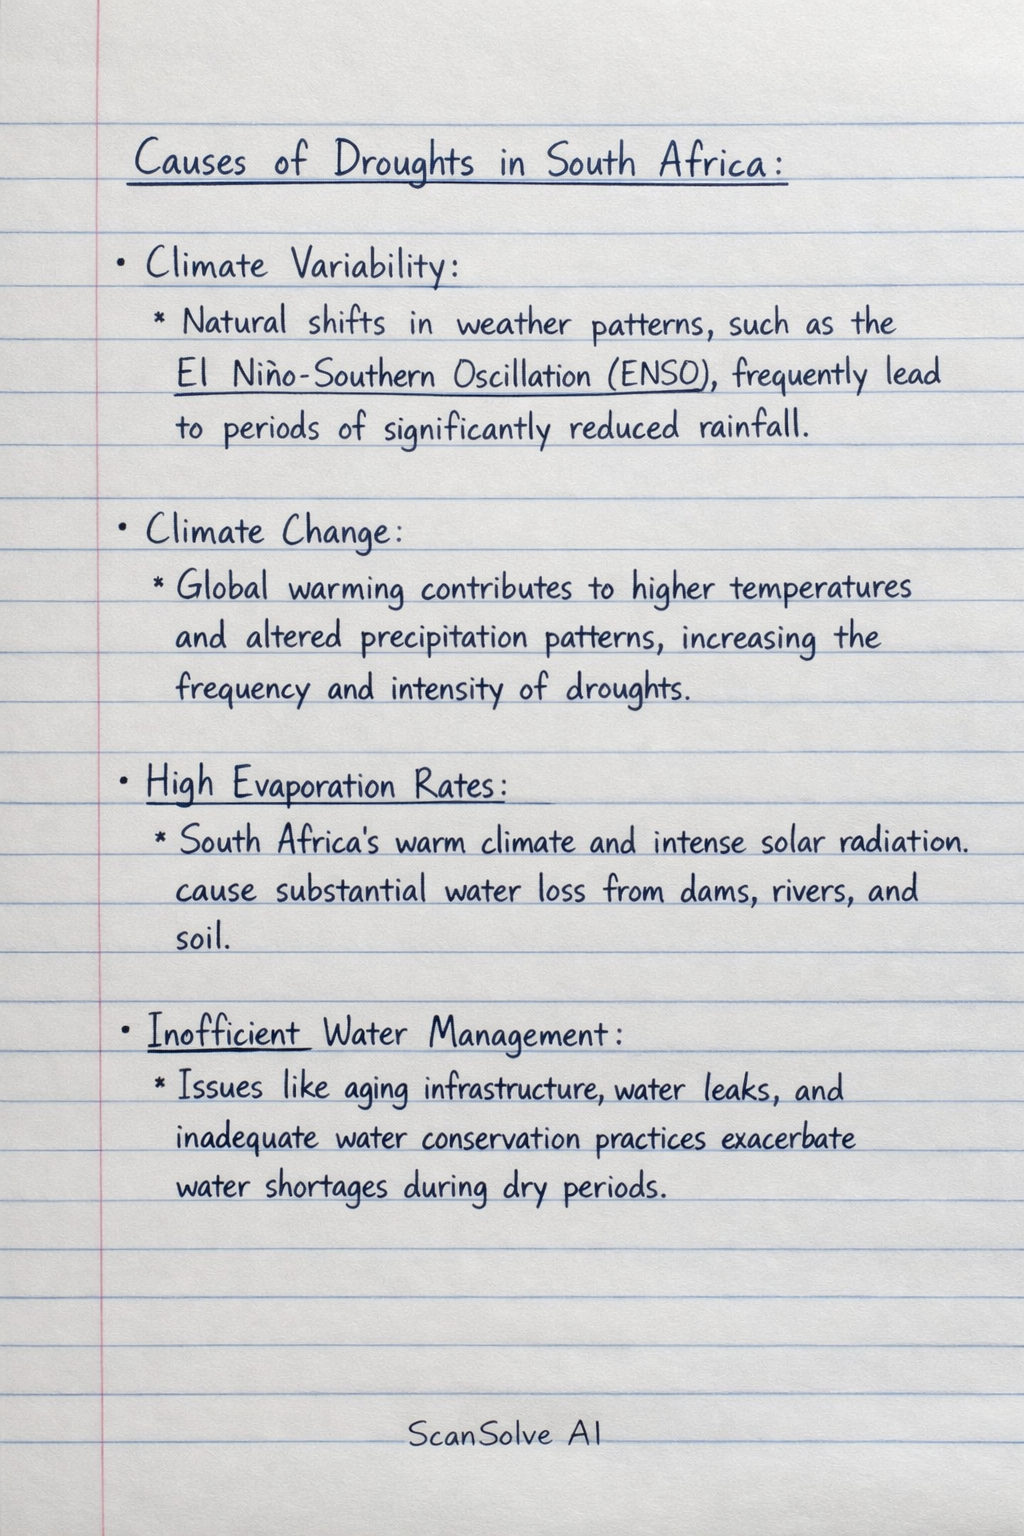 Causes of Droughts in South Africa:
• Climate Variability:
* Natural shifts in weather patterns, such as the
El Niño-Southern Oscillation (ENSO), frequently lead
to periods of significantly reduced rainfall.
• Climate Change:
* Global warming contributes to higher temperatures
and altered precipitation patterns, increasing the
frequency and intensity of droughts.
• High Evaporation Rates:
* South Africa's warm climate and intense solar radiation.
cause substantial water loss from dams, rivers, and
soil.
• Inofficient Water Management:
* Issues like aging infrastructure, water leaks, and
inadequate water conservation practices exacerbate
water shortages during dry periods.
ScanSolve AI